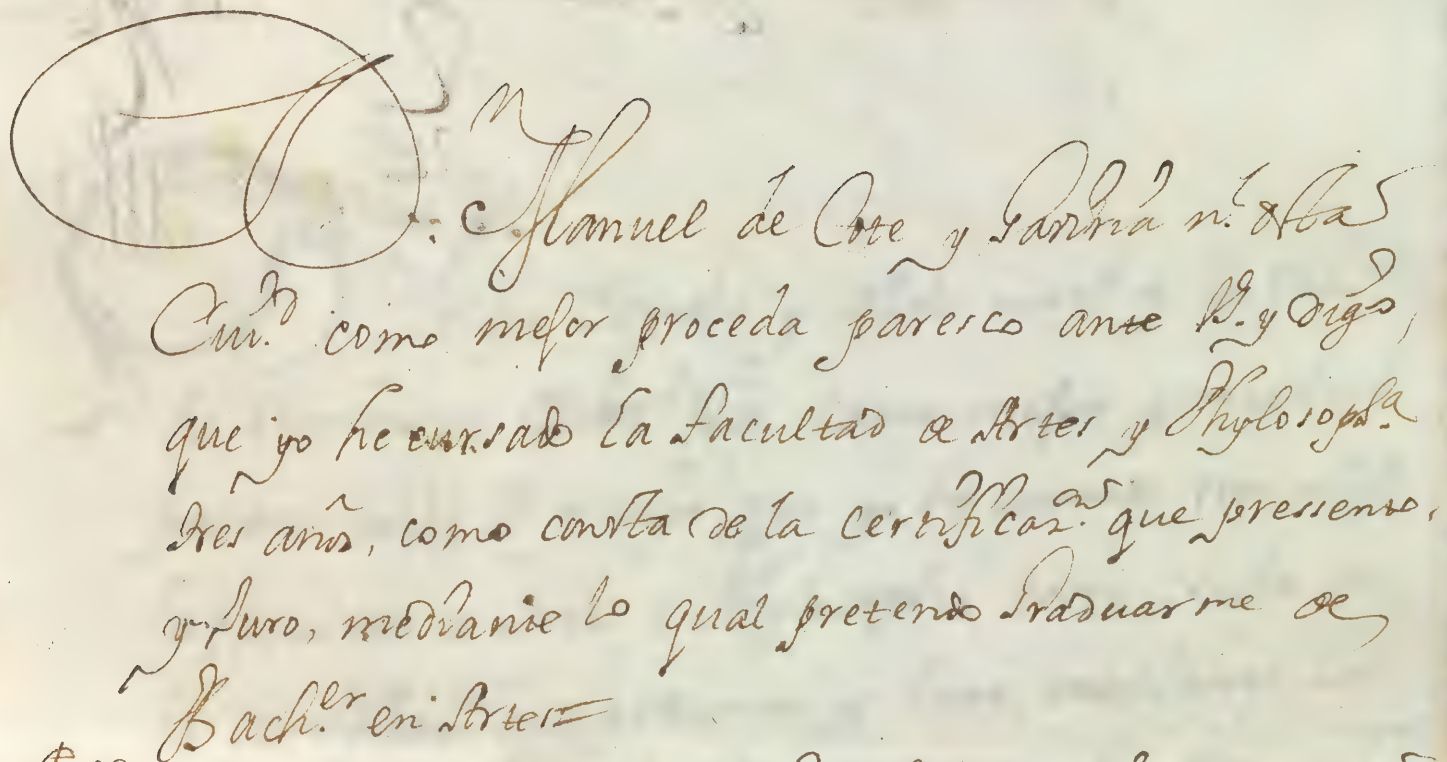 D.n Manuel de Cote y n.l desta
Ciu.d como mejor proceda paresco ante V. y digo,
que yo he cursado la facultad de Artes y Phylosoph.a
tres años, como consta de la certificaz.on que pressento,
y Juro, mediante lo qual pretendo Graduarme de
Bach.er en Artes=